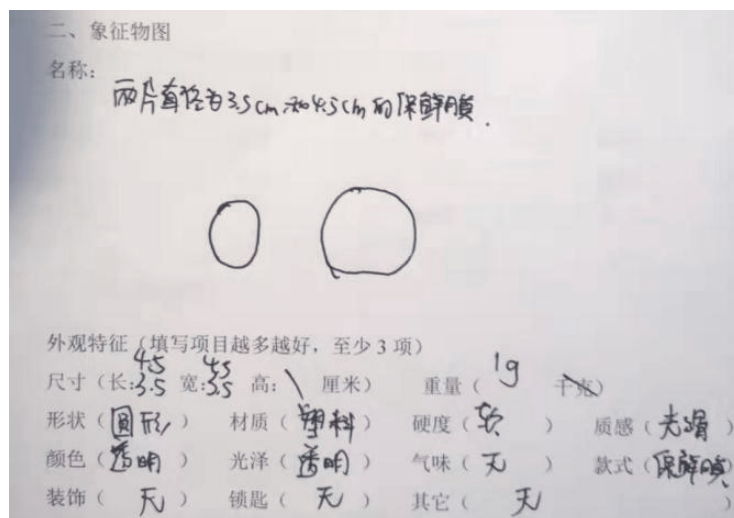 二、象征物图
名称:
两片直径为3.5cm和4.5cm的保鲜膜.
外观特征(填写项目越多越好,至少3项)
4.5 4.5
尺寸(长:3.5 宽:3.5 高:\ 厘米) 重量( 1g 千克)
形状(圆形) 材质(塑料) 硬度(软) 质感(光滑)
颜色(透明) 光泽(透明) 气味(无) 款式(保鲜膜)
装饰(无) 锁匙(无) 其它(无)